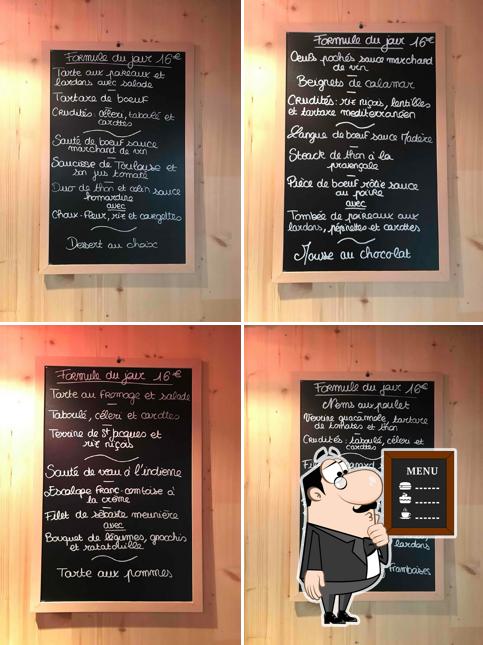 Formule du jour 16€
Tarte aux poireaux et
lardons avec salade
Tartare de boeuf
Crudités: céleri, taboulé et
carottes
Sauté de boeuf sauce
marchand de vin
Saucisse de Toulouse et
son jus tomaté
Duo de thon et colin sauce
homardine
avec
Choux-fleur, riz et courgettes
Dessert au choix
Formule du jour 16€
Oeufs pochés sauce marchand
de vin
Beignets de calamar
Crudités: riz niçois, lentilles
et tartare mediterranéen
Langue de boeuf sauce Madère
Steack de thon à la
provençale
Pièce de boeuf rôtie sauce
au poivre
avec
Tombée de poireaux aux
lardons, pépinettes et carottes
Mousse au chocolat
Formule du jour 16€
Tarte au fromage et salade
Taboulé, céleri et carottes
Terrine de St Jacques et
riz niçois
Sauté de veau à l'indienne
Escalope Franc-comtoise à
la crème
Filet de sébaste meunière
avec
Bouquet de légumes, gnocchis
et ratatouille
Tarte aux pommes
Formule du jour 16€
Nems au poulet
Verrine guacamole, tartare
de tomates et thon
Crudités: taboulé, céleri et
carottes
MENU
lardons
framboises